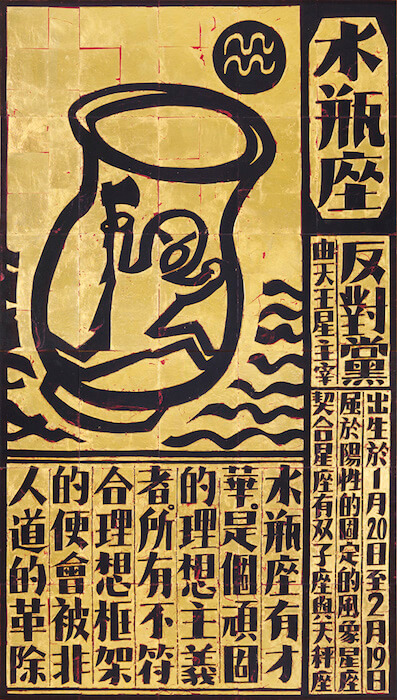 水瓶座
反對黨
由天王星主宰
出生於1月20日至2月19日
屬於陽性的固定的風象星座
契合星座有双子座與天秤座
水瓶座有才
華。是個頑固
的理想主義
者。所有不符
合理想框架
的便會被非
人道的革除